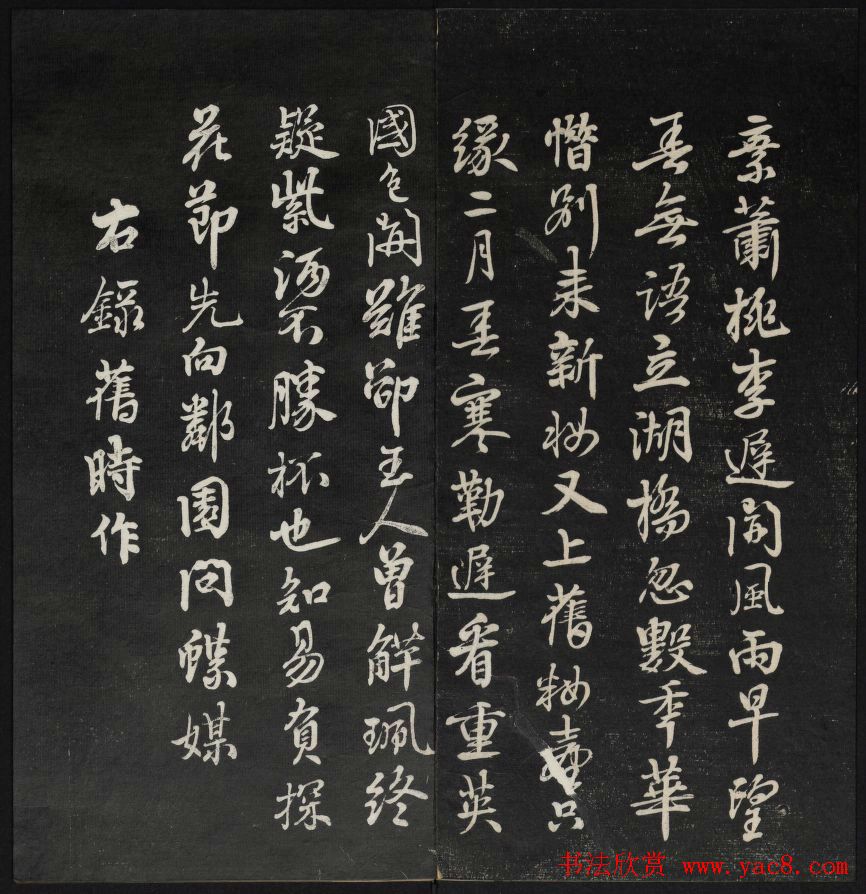 棄蕭桃李遲開風雨早望
春無語立湖橋忽數年華
惜別來新妝又上舊妝臺只
緣二月春寒勒遲看重英
國色開雖卻王人曾解珮終
疑紫酒不勝杯也知易負探
花節先向鄰園問蝶媒
右錄舊時作
书法欣赏 www.yac8.com